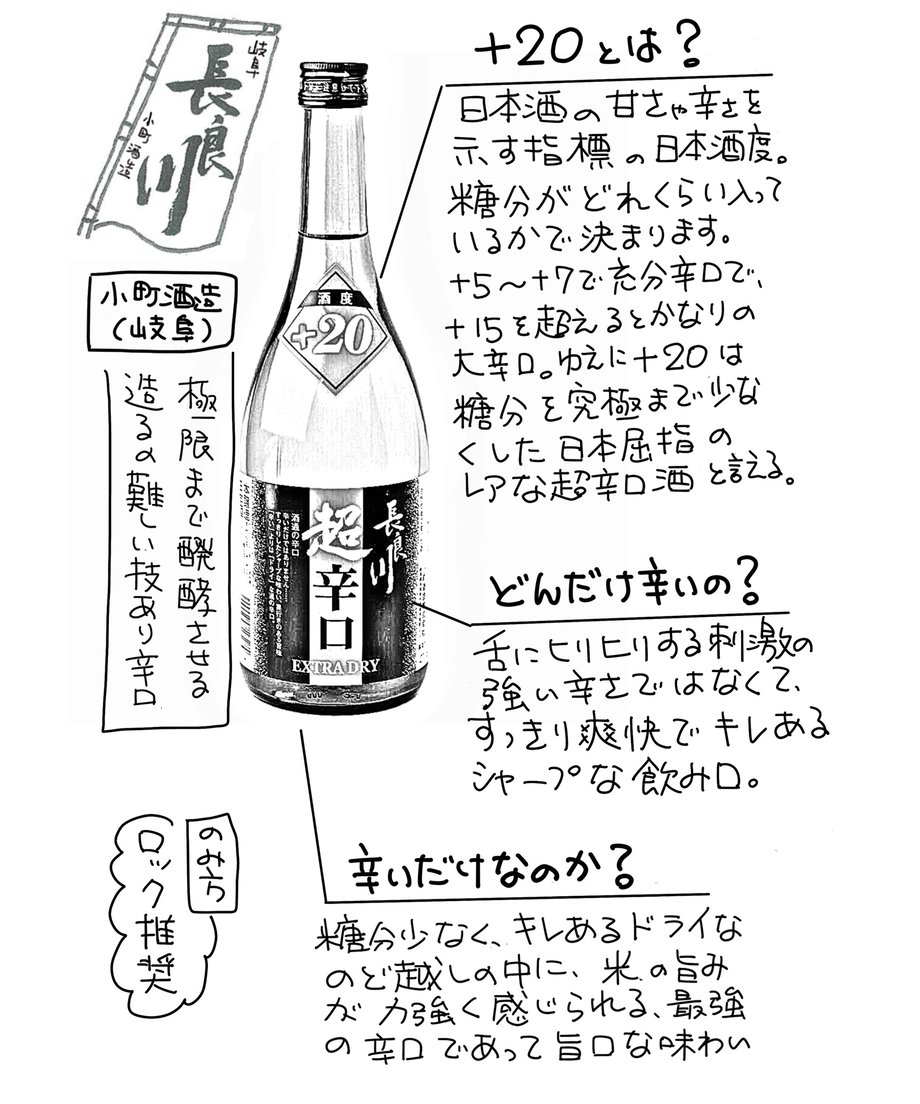 岐阜
長良川
小町酒造
小町酒造
(岐阜)
極限まで醗酵させる
造るの難しい技あり辛口
酒度
+20
長良川
超辛口
EXTRA DRY
+20とは?
日本酒の甘さや辛さを
示す指標の日本酒度。
糖分がどれくらい入って
いるかで決まります。
+5〜+7で充分辛口で、
+15を超えるとかなりの
大辛口。ゆえに+20は
糖分を究極まで少な
くした日本屈指の
レアな超辛口酒と言える。
どんだけ辛いの?
舌にヒリヒリする刺激の
強い辛さではなくて、
すっきり爽快でキレある
シャープな飲み口。
辛いだけなのか?
糖分少なく、キレあるドライな
のど越しの中に、米の旨み
が力強く感じられる、最強
の辛口であって旨口な味わい
のみ方
ロック推奨